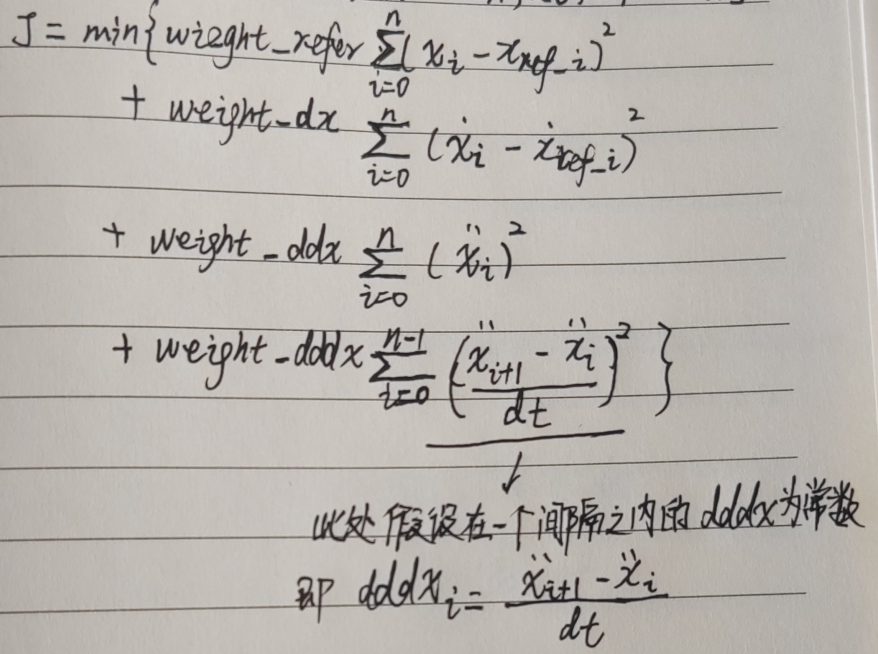 J = min{ wieght_refer \sum_{i=0}^{n} ( x_i - x_{ref_i} )^2
+ weight_dx \sum_{i=0}^{n} ( \dot{x}_i - \dot{x}_{ref_i} )^2
+ weight_ddx \sum_{i=0}^{n} ( \ddot{x}_i )^2
+ weight_dddx \sum_{i=0}^{n-1} ( \frac{\ddot{x}_{i+1} - \ddot{x}_i}{dt} )^2 }
↓
此处假设在一个间隔之内的 dddx 为常数
即 dddx_i = \frac{\ddot{x}_{i+1} - \ddot{x}_i}{dt}